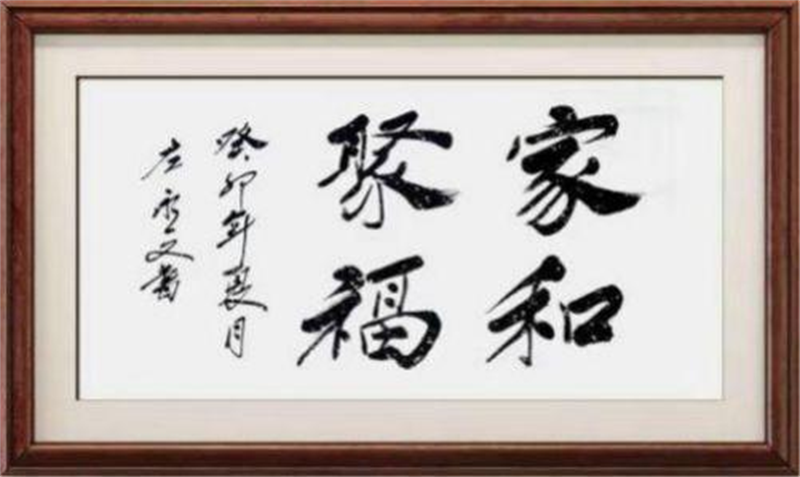 家和
聚福
癸卯年夏月
左永文書